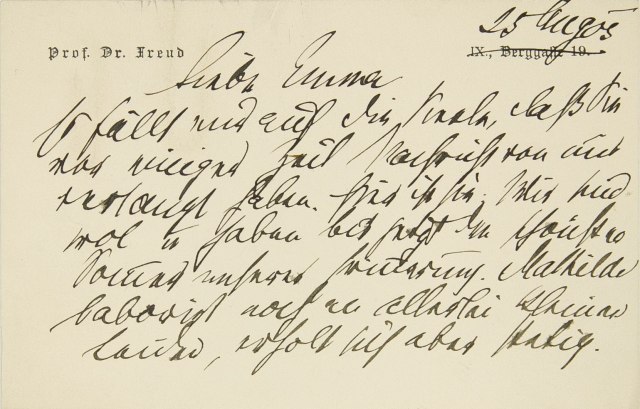 25 Aug 05
Prof. Dr. Freud
IX., Berggasse 19.
Liebe Emma
Es fällt mir auf die Seele, daß Sie
vor einiger Zeit Nachricht von mir
verlangt haben. Hier ist sie. Wir sind
wol u haben bis jetzt den schönsten
Sommer unserer Erinnerung. Mathilde
laborirt noch an allerlei kleinen
erholt sich aber stetig.